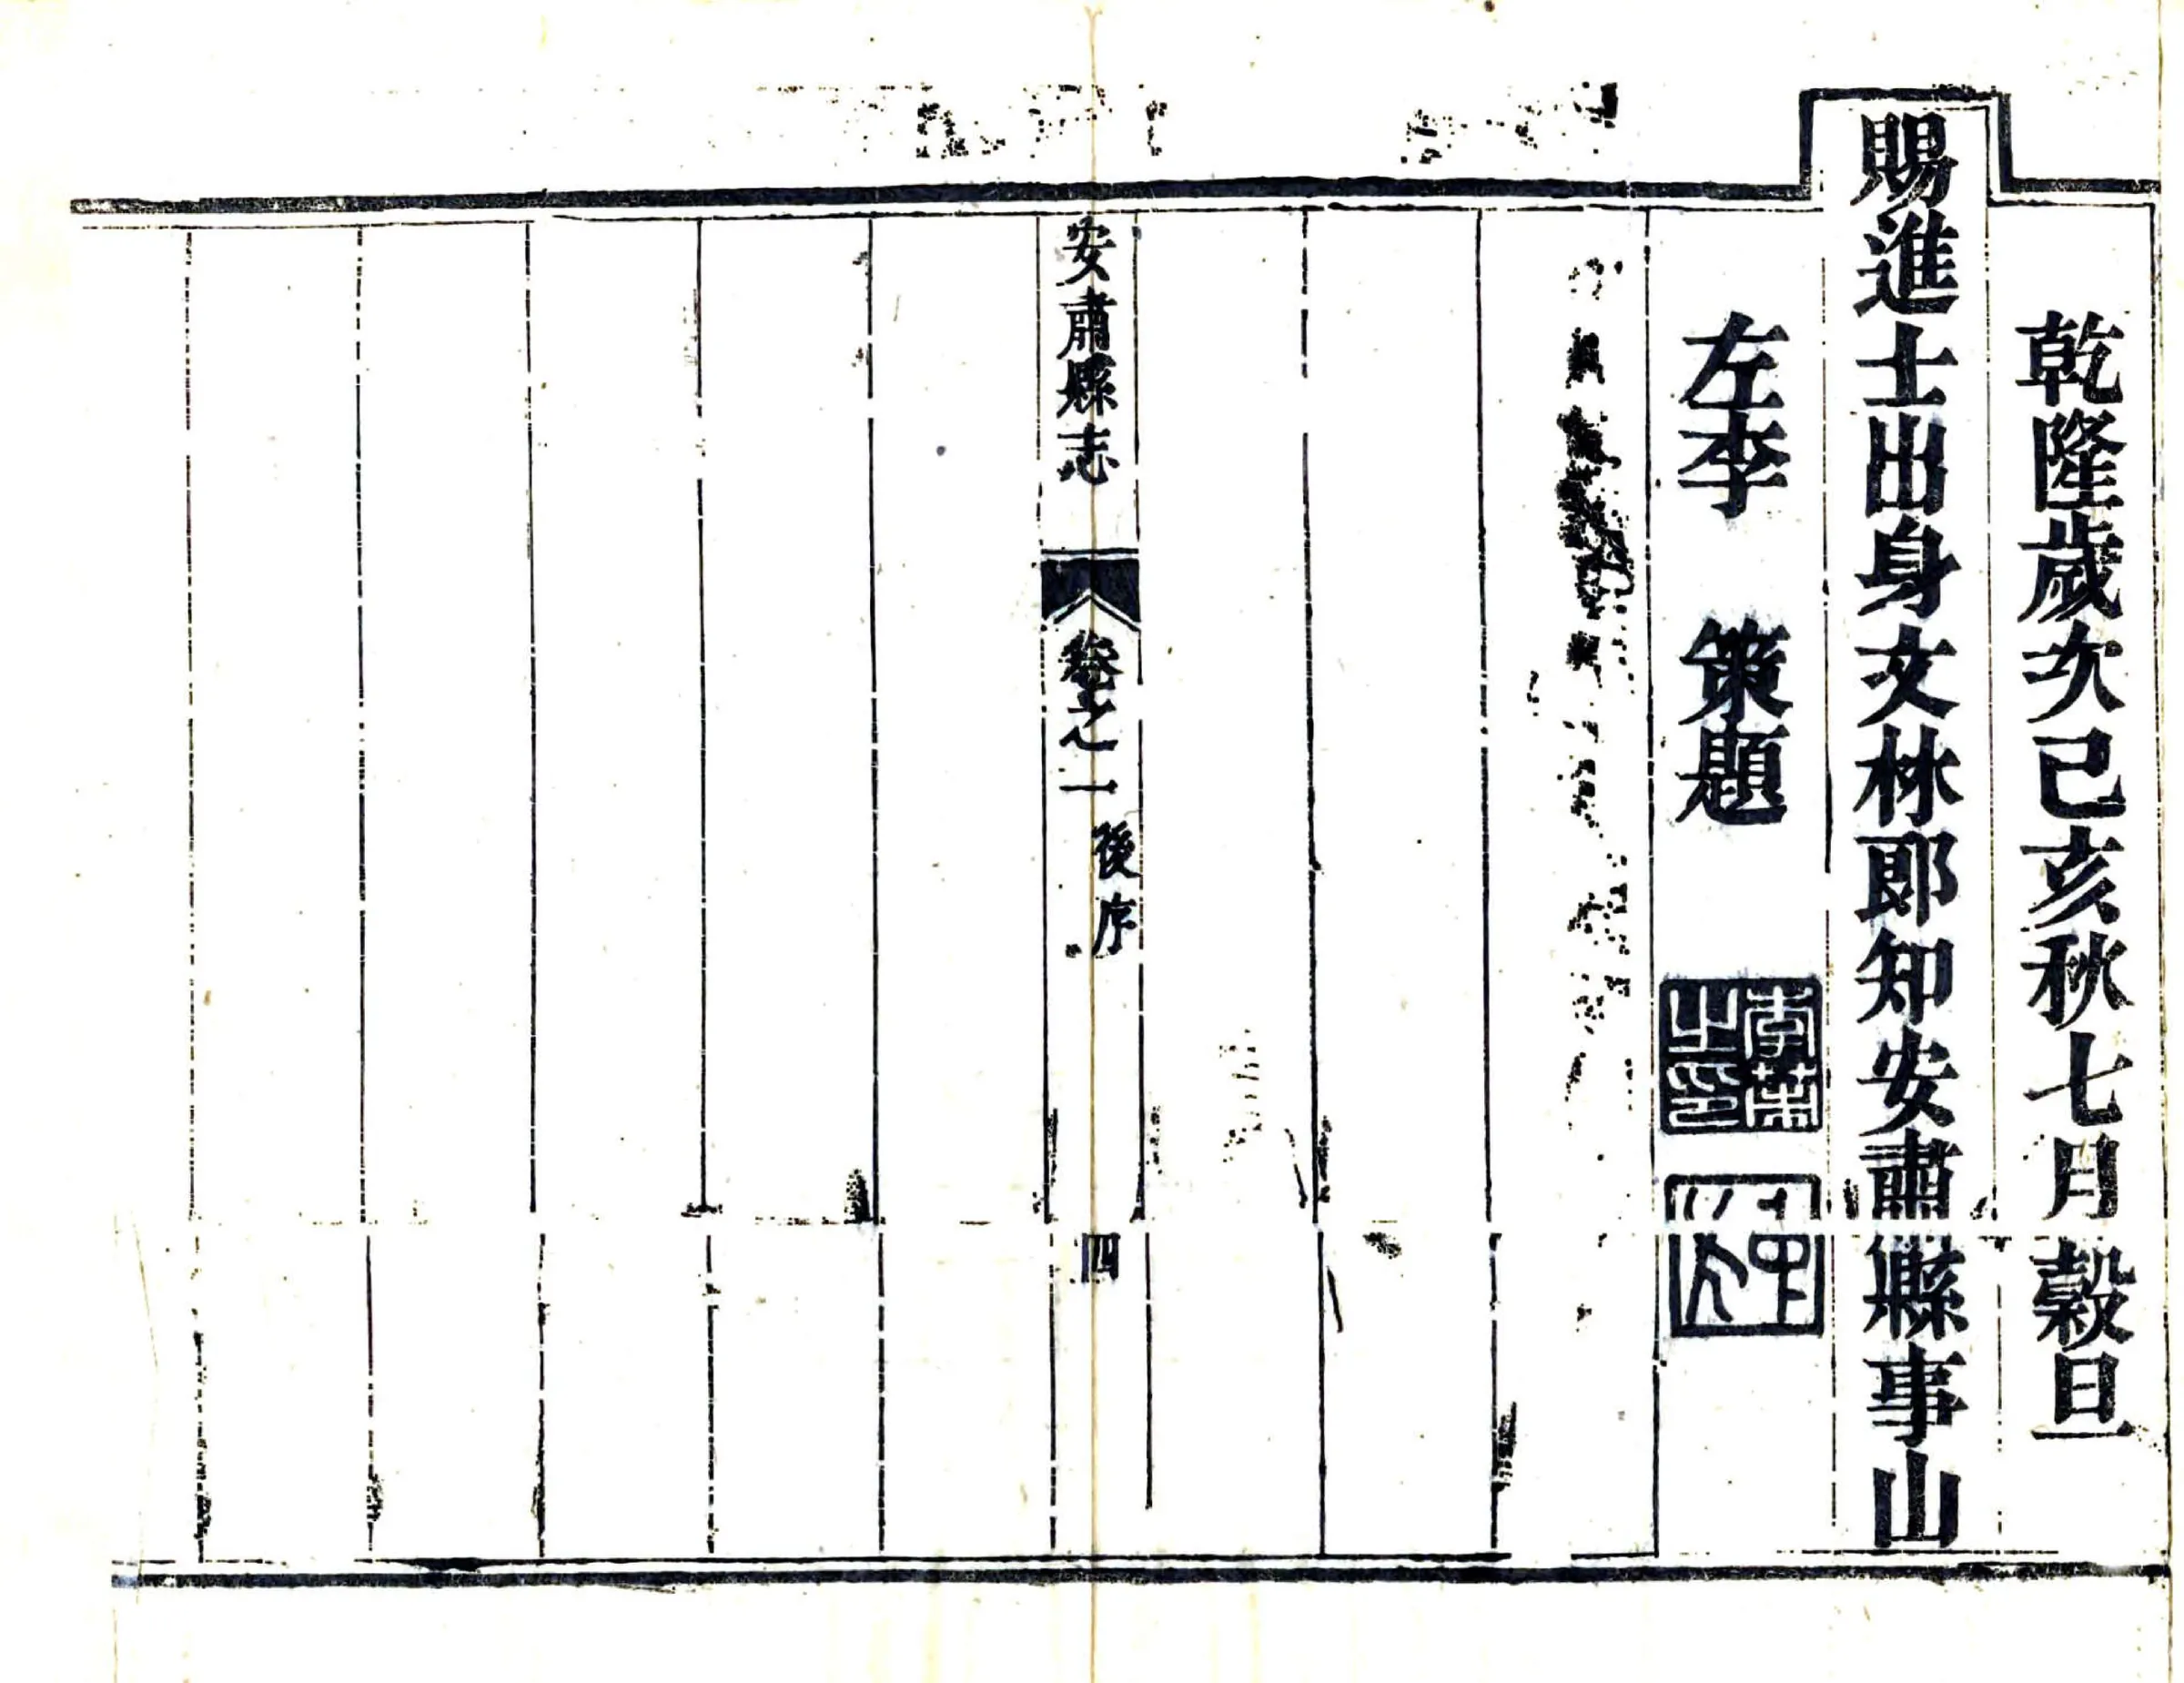 乾隆歲次己亥秋七月穀旦
賜進士出身文林郎知安肅縣事山
左李　策題
李策之印
安肅縣志
卷之一
後序
四